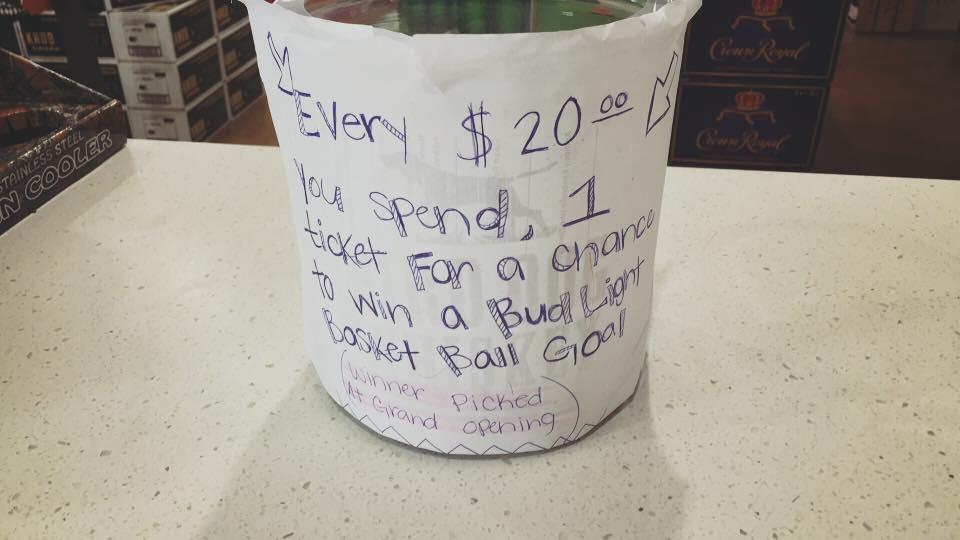 KNOB
Crown Royal
Crown Royal
STAINLESS STEEL
N COOLER
Every $20.00
you spend, 1
ticket For a chance
to win a Bud Light
Basket Ball Goal
(Winner Picked
At Grand opening)